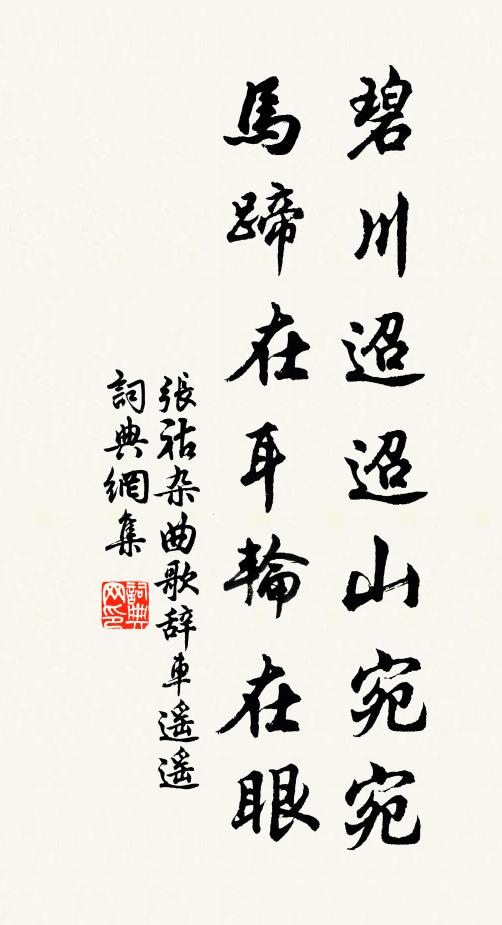 碧川迢迢山宛宛
馬蹄在耳輪在眼
張祜杂曲歌辞車遥遥
詞典網集
詞典网印